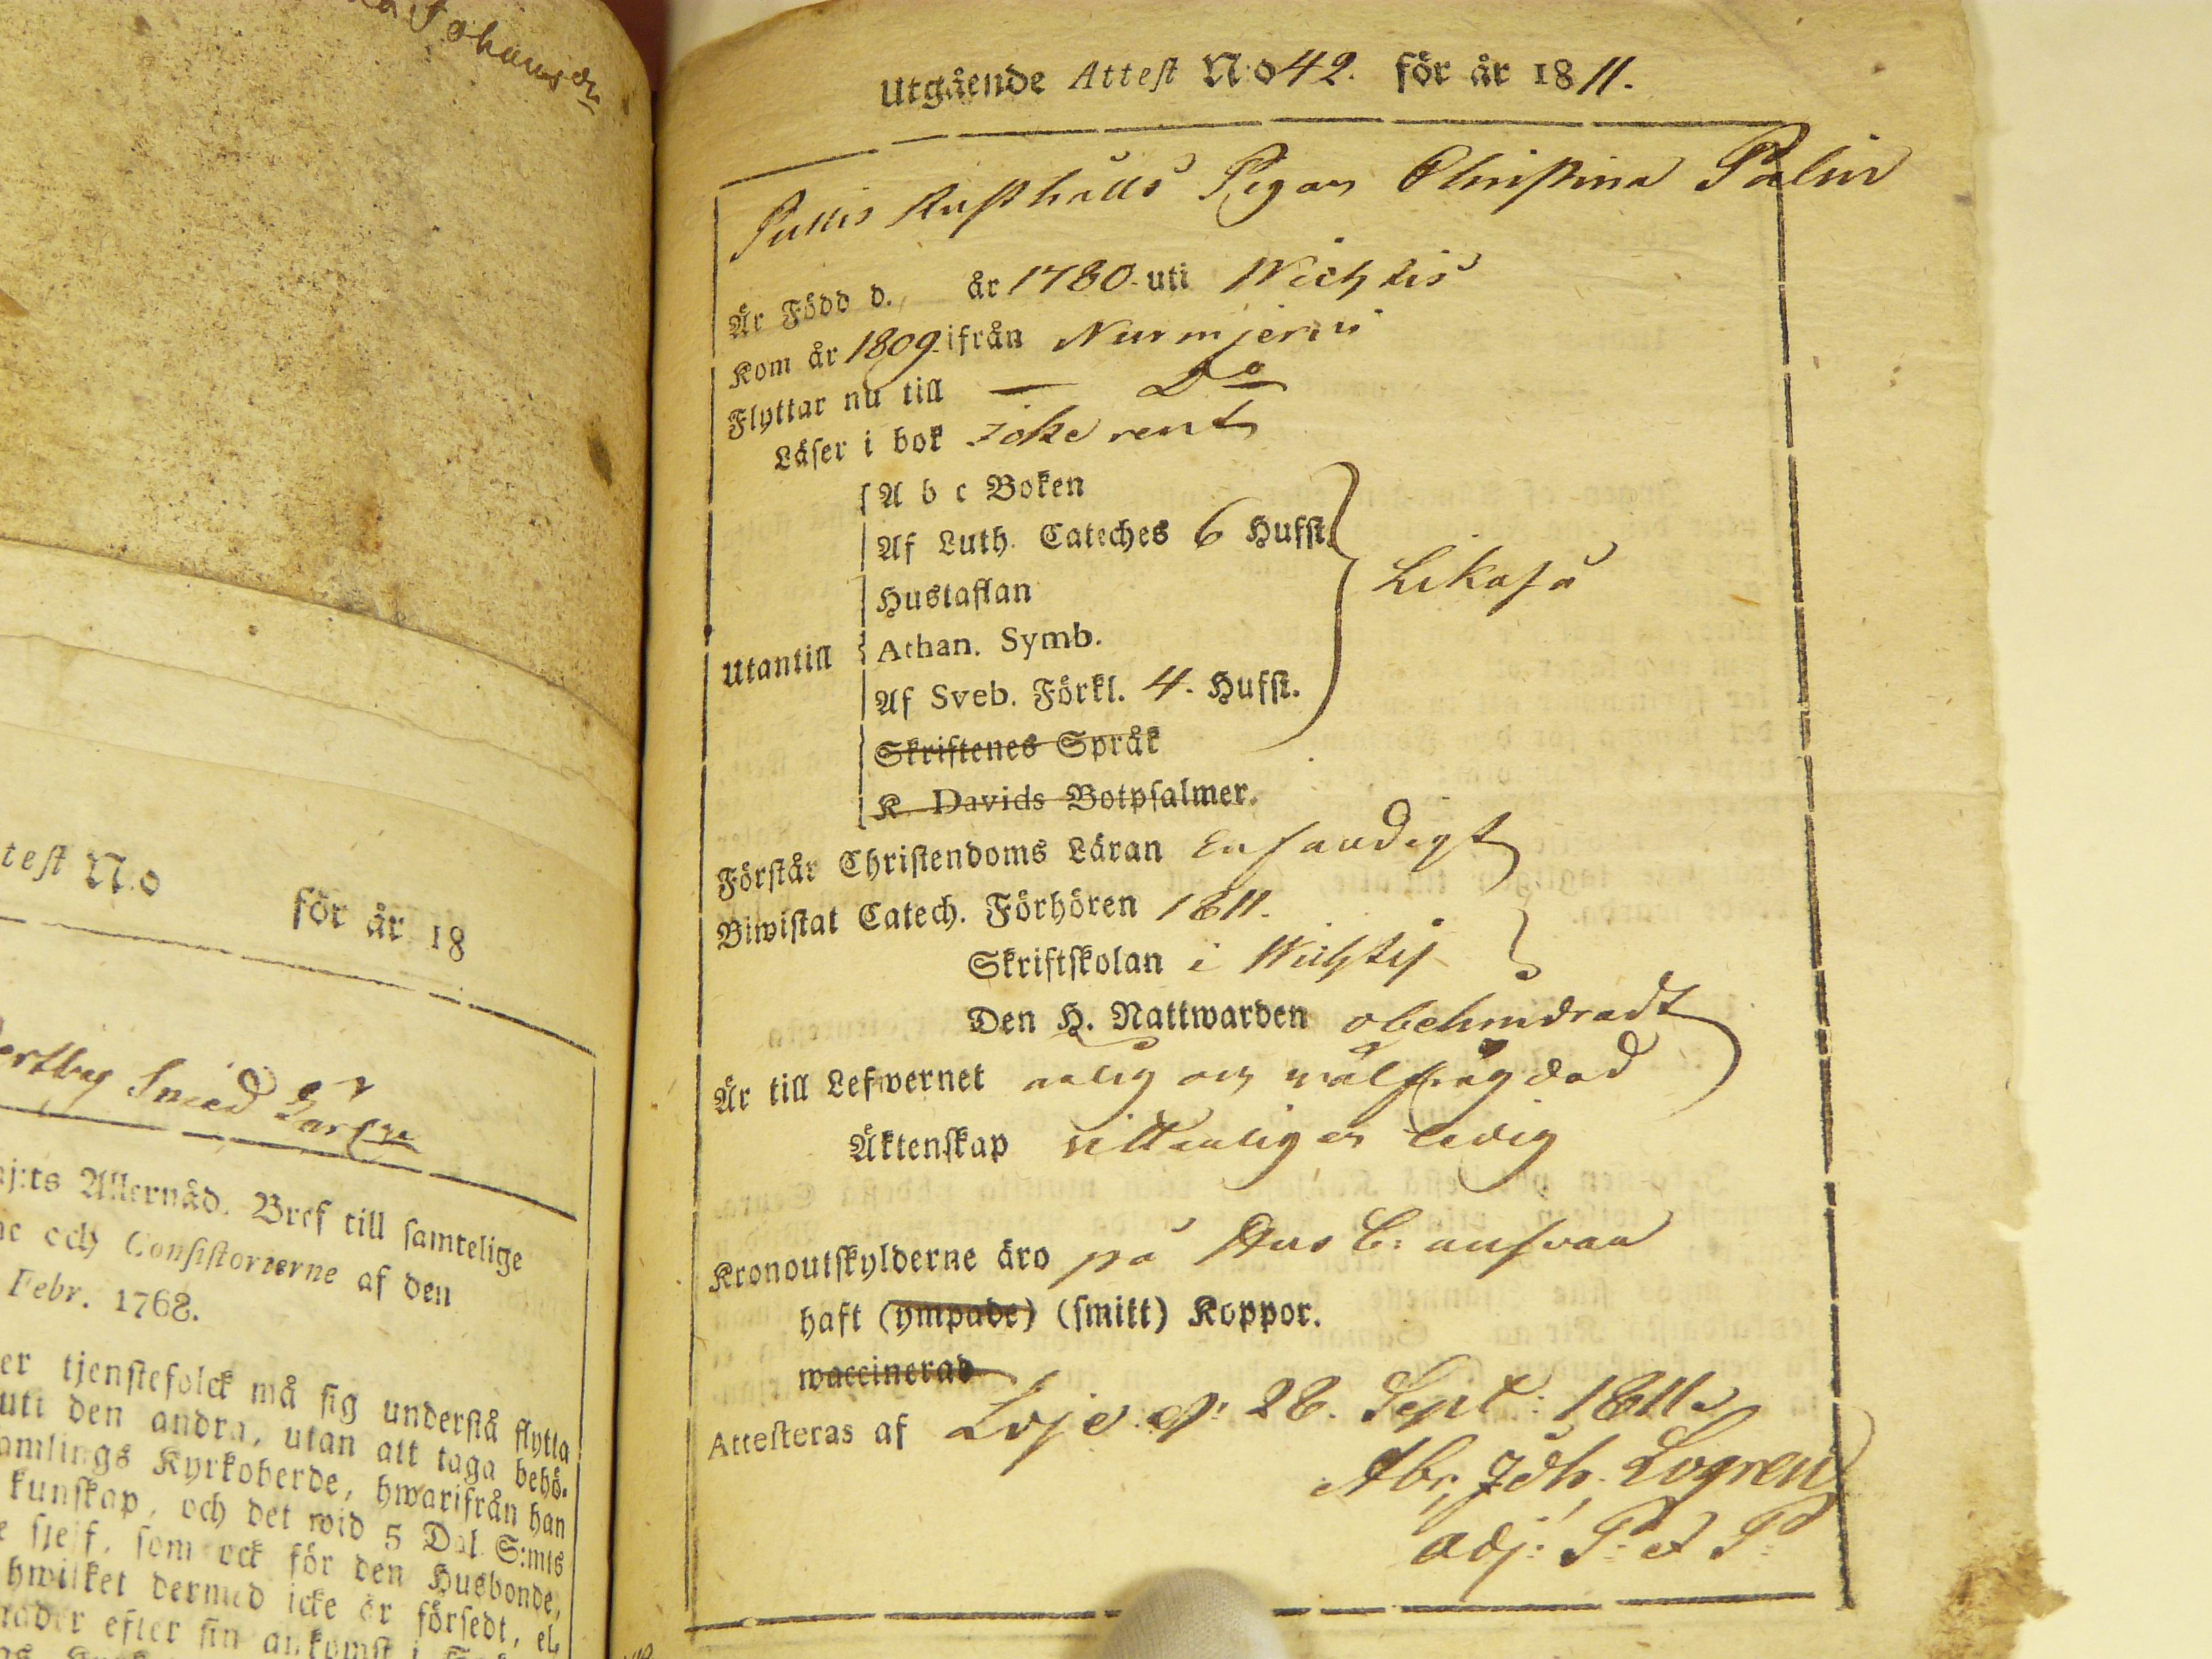 Johansdr
test N:o
för år 18
Smed
aj:ts Allernåd. Bref till samtelige
ne och Consistorierne af den
Febr. 1768.
er tjenstefolck må sig understå flytta
uti den andra, utan att taga behö-
amlings Kyrkoherde, hwarifrån han
kunskap, och det wid 5 Dal. S:mts
e sjelf, som ock för den Husbonde,
hwilket dermed icke är försedt, el-
nader efter sin ankomst i
Utgående Attest N:o 42. för år 1811.
Rusthålls Pigan Christina Palin
Är Född d. år 1780. uti Wichtis
Kom år 1809. ifrån Nurmjervi
Flyttar nu till — Do
Läser i bok icke rent
A b c Boken
Af Luth. Cateches 6 Hufst.
Hustaflan
Likaså
Utantill
Athan. Symb.
Af Sveb. Förkl. 4. Hufst.
Skriftenes Språk
K. Davids Botpsalmer.
Förstår Christendoms Läran Enfaudigt
Biwistat Catech. Förhören 1811.
Skriftskolan i Wichtis
Den H. Nattwarden obehindradt
Är till Lefwernet ärlig och wälfrägdad
Äktenskap vitterligen ledig
Kronoutskylderne äro på Hus B: answar
haft (ympade) (smitt) Koppor.
waccinerad
Attesteras af Lojo d. 28. Sept: 1811
Abr. Joh. Logren
adj: P: et P: